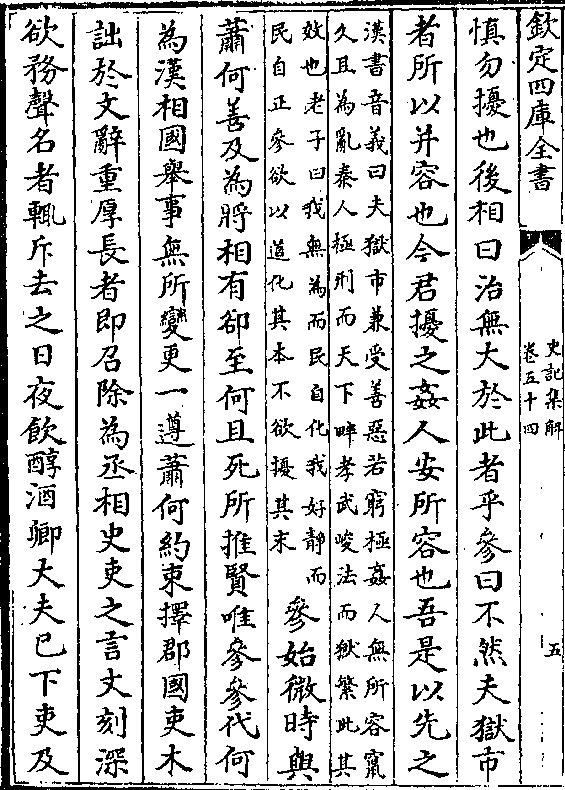 欽定四庫全書
史記集解
卷五十四
五
慎勿擾也後相曰治無大於此者乎參曰不然夫獄市
者所以并容也今君擾之姦人安所容也吾是以先之
漢書音義曰夫獄市兼受善惡若窮極姦人無所容竄
久且為亂秦人極刑而天下畔孝武峻法而獄繁此其
效也老子曰我無為而民自化我好静而
民自正參欲以道化其本不欲擾其末
參始微時與
蕭何善及為將相有郤至何且死所推賢唯參參代何
為漢相國舉事無所變更一遵蕭何約束擇郡國吏木
詘於文辭重厚長者即召除為丞相史吏之言文刻深
欲務聲名者輒斥去之日夜飲醇酒卿大夫已下吏及